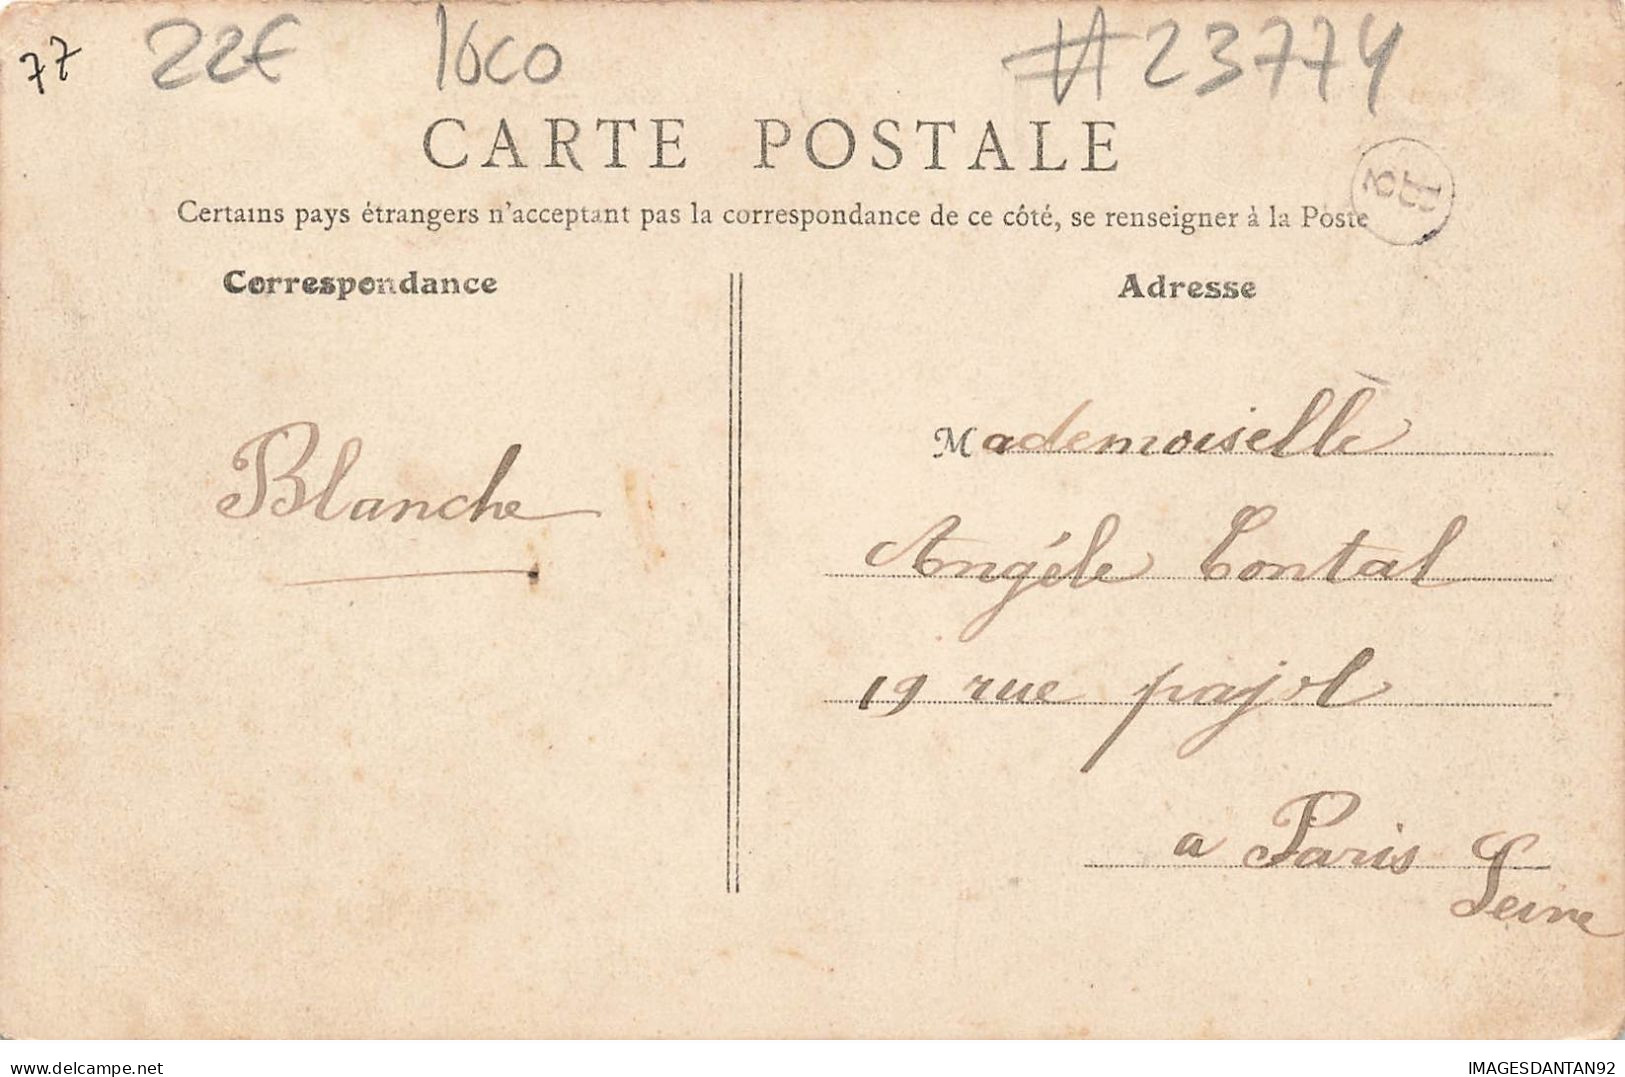 77 22€ loco #23774
CARTE POSTALE
Certains pays étrangers n'acceptant pas la correspondance de ce côté, se renseigner à la Poste
Correspondance
Adresse
Mademoiselle
Blanche
Angéle Tontal
19 rue pajol
a Paris
Seine
IMAGESDANTAN92